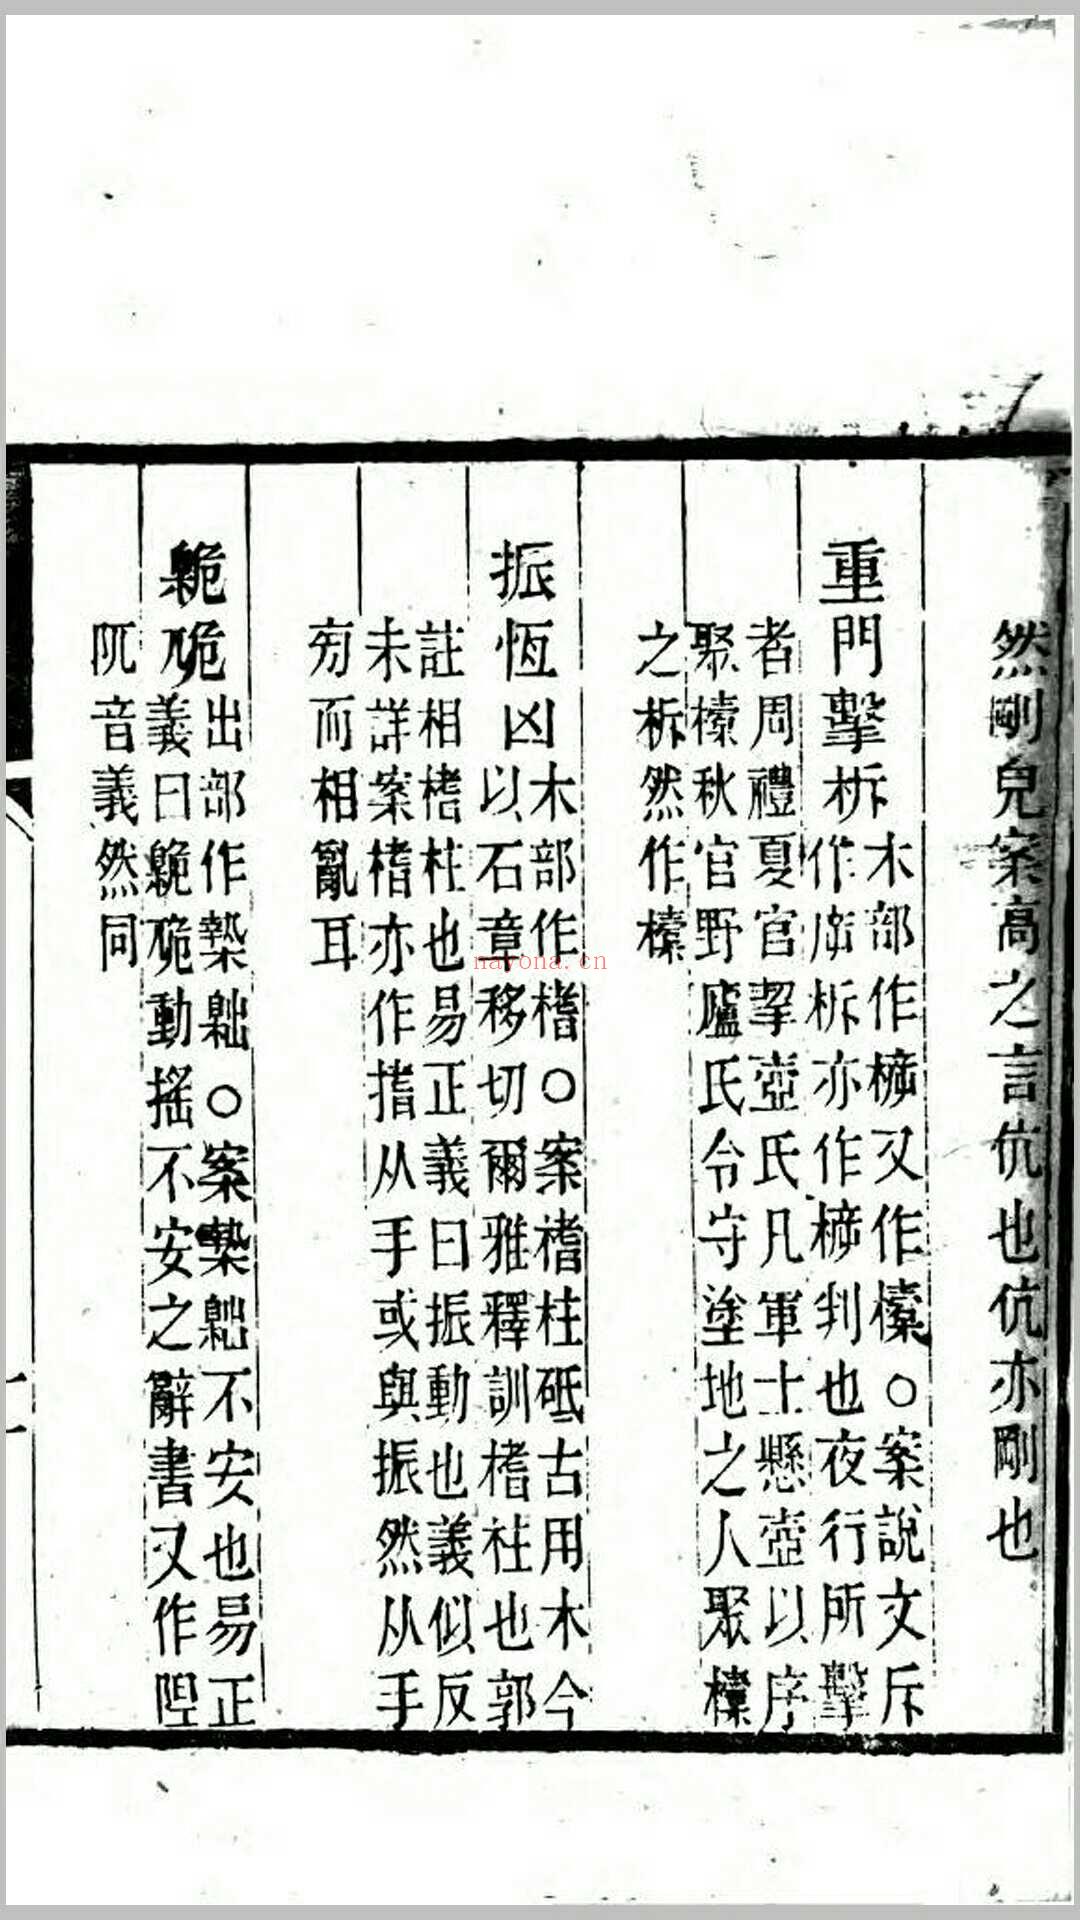 然剛皃案高之言伉也伉亦剛也
重門擊柝木部作㯓又作𣝔〇案說文斥
作㡿柝亦作㯓判也夜行所擊
者周禮夏官挈壺氏凡軍士懸壺以序
聚𣝔秋官野廬氏令守塗地之人聚𣝔
之柝然作𣝔
振恆凶木部作榰〇案榰柱砥古用木今
以石章移切爾雅釋訓榰柱也郭
註相榰柱也易正義曰振動也義似反
未詳案榰亦作搘从手或與振然从手
㫄而相亂耳
臲卼出部作槷𪕍〇案槷𪕍不安也易正
義曰臲卼動搖不安之辭書又作隉
阢音義然同
nayona.cn